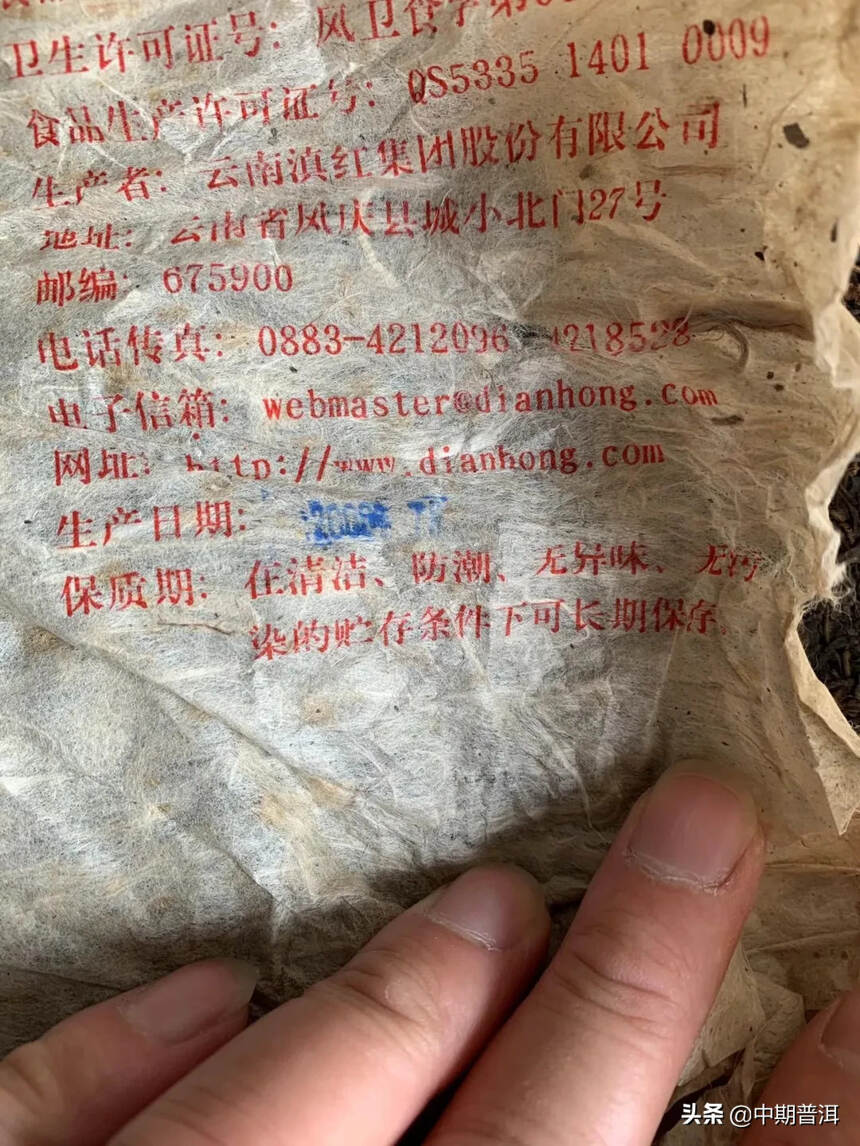 卫生许可证号: 凤卫食字第
食品生产许可证号: QS5335 1401 0009
生产者: 云南滇红集团股份有限公司
地址: 云南省凤庆县城小北门27号
邮编: 675900
电话传真: 0883-4212096 4218528
电子信箱: webmaster@dianhong.com
网址: http://www.dianhong.com
生产日期:
保质期: 在清洁、防潮、无异味、无污
染的贮存条件下可长期保存
头条 @中期普洱